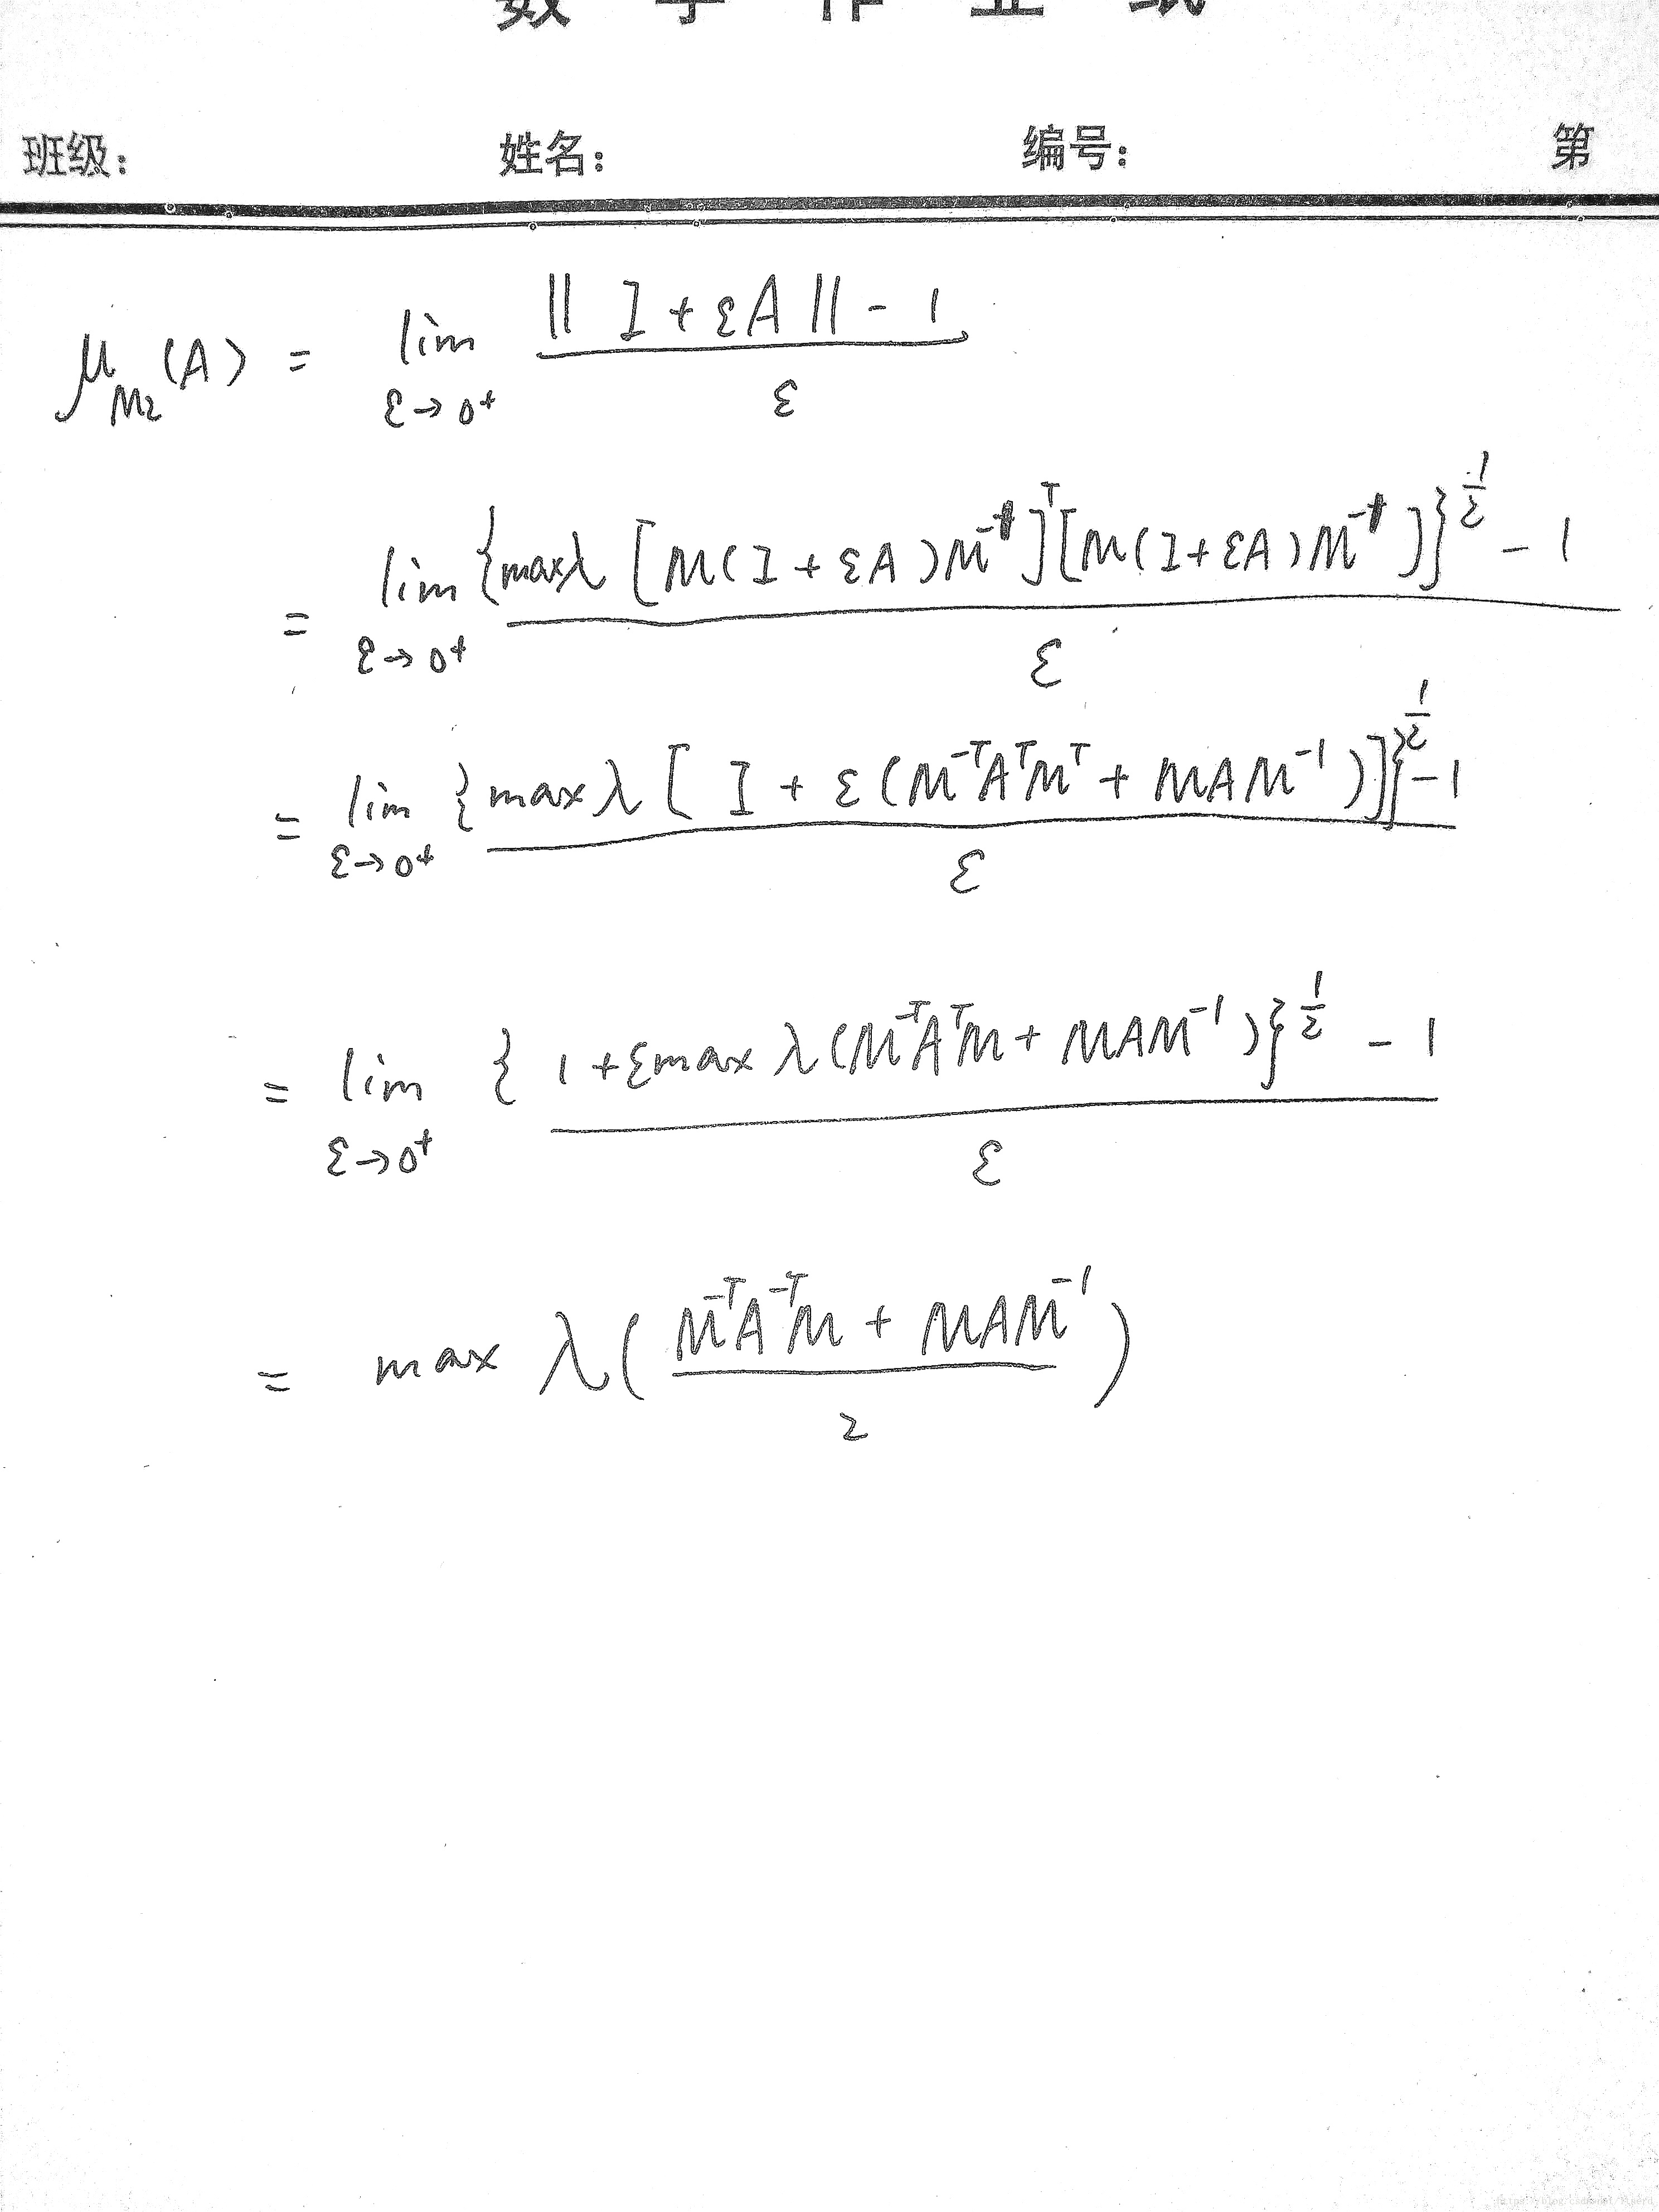 数 学 作 业 纸
班级: 姓名: 编号: 第
μ_{M2}(A) = lim_{ε→0⁺} (|| I + εA || - 1) / ε
= lim_{ε→0⁺} ({maxλ [M(I + εA)M⁻¹]ᵀ[M(I+εA)M⁻¹]}^{1/2} - 1) / ε
= lim_{ε→0⁺} ({maxλ [ I + ε(M⁻ᵀAᵀMᵀ + MAM⁻¹)]}^{1/2} - 1) / ε
= lim_{ε→0⁺} ({1 + εmax λ(M⁻ᵀAᵀM + MAM⁻¹)}^{1/2} - 1) / ε
= max λ( (M⁻ᵀA⁻ᵀM + MAM⁻¹) / 2 )